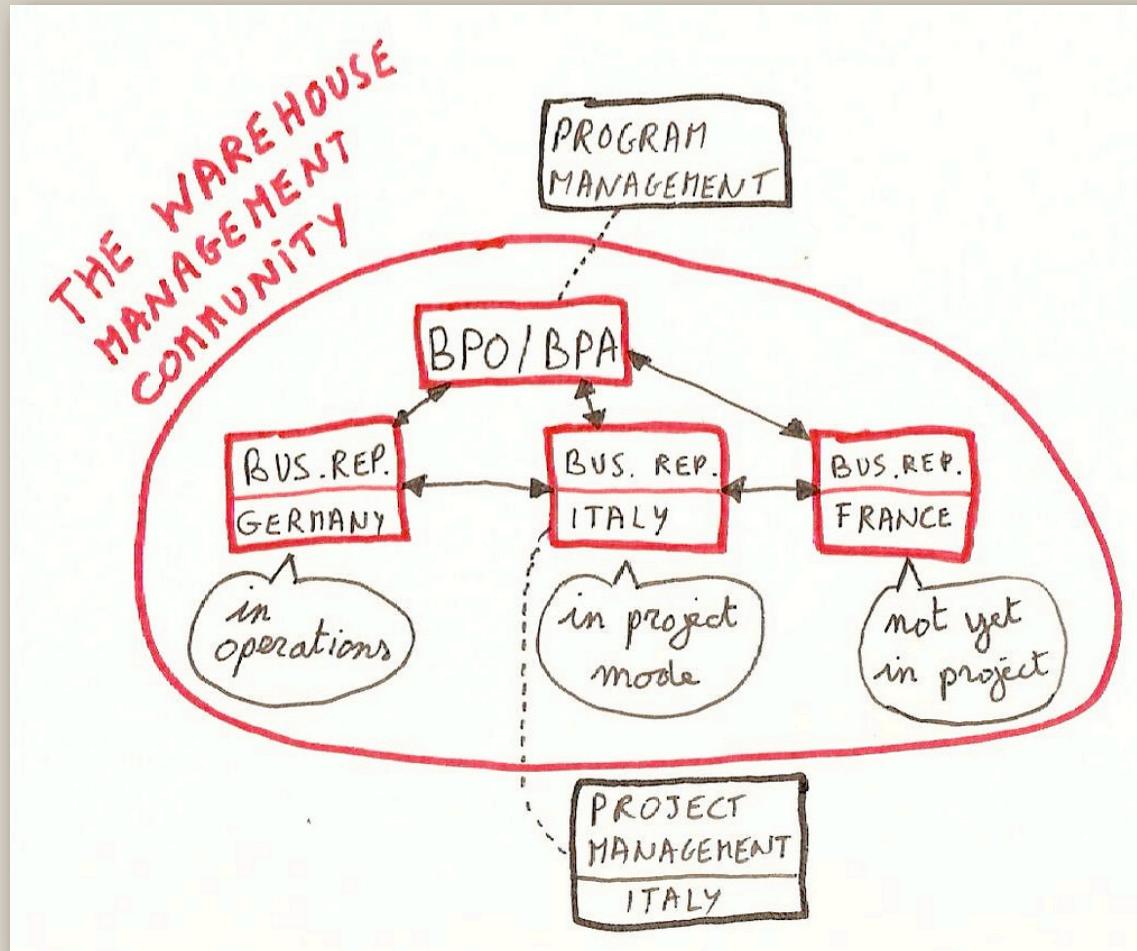 THE WAREHOUSE
MANAGEMENT
COMMUNITY
PROGRAM
MANAGEMENT
BPO/BPA
BUS.REP.
GERMANY
BUS. REP.
ITALY
BUS.REP.
FRANCE
in
operations
in project
mode
not yet
in project
PROJECT
MANAGEMENT
ITALY